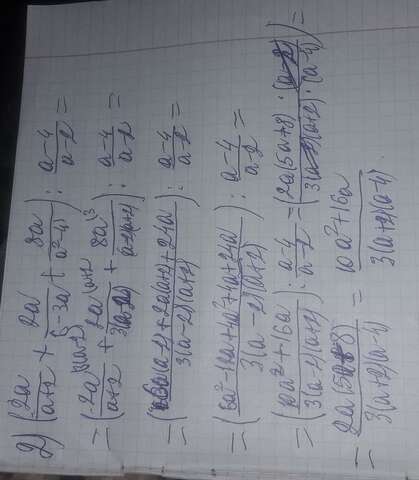 2) (2a/a+2 + 2a/6-3a + 8a/a²-4) : a-4/a-2 =
= (2a/a+2 + 2a/3(a-2) + 8a/(a-2)(a+2)) : a-4/a-2 =
= (6a(a-2)+2a(a+2)+24a/3(a-2)(a+2)) : a-4/a-2 =
= (6a²-12a+4a²+4a+24a/3(a-2)(a+2)) : a-4/a-2 =
= (10a²+16a/3(a-2)(a+2)) : a-4/a-2 = (2a(5a+8)·(a-2)/3(a-2)(a+2)·(a-4)) =
= 2a(5a+8)/3(a+2)(a-4) = 10a²+16a/3(a+2)(a-4).